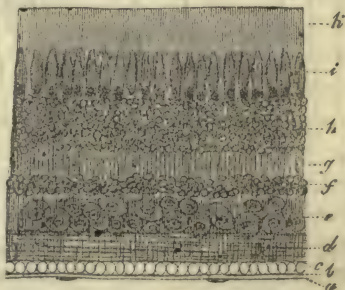 k
i
h
g
f
e
d
c
b
a